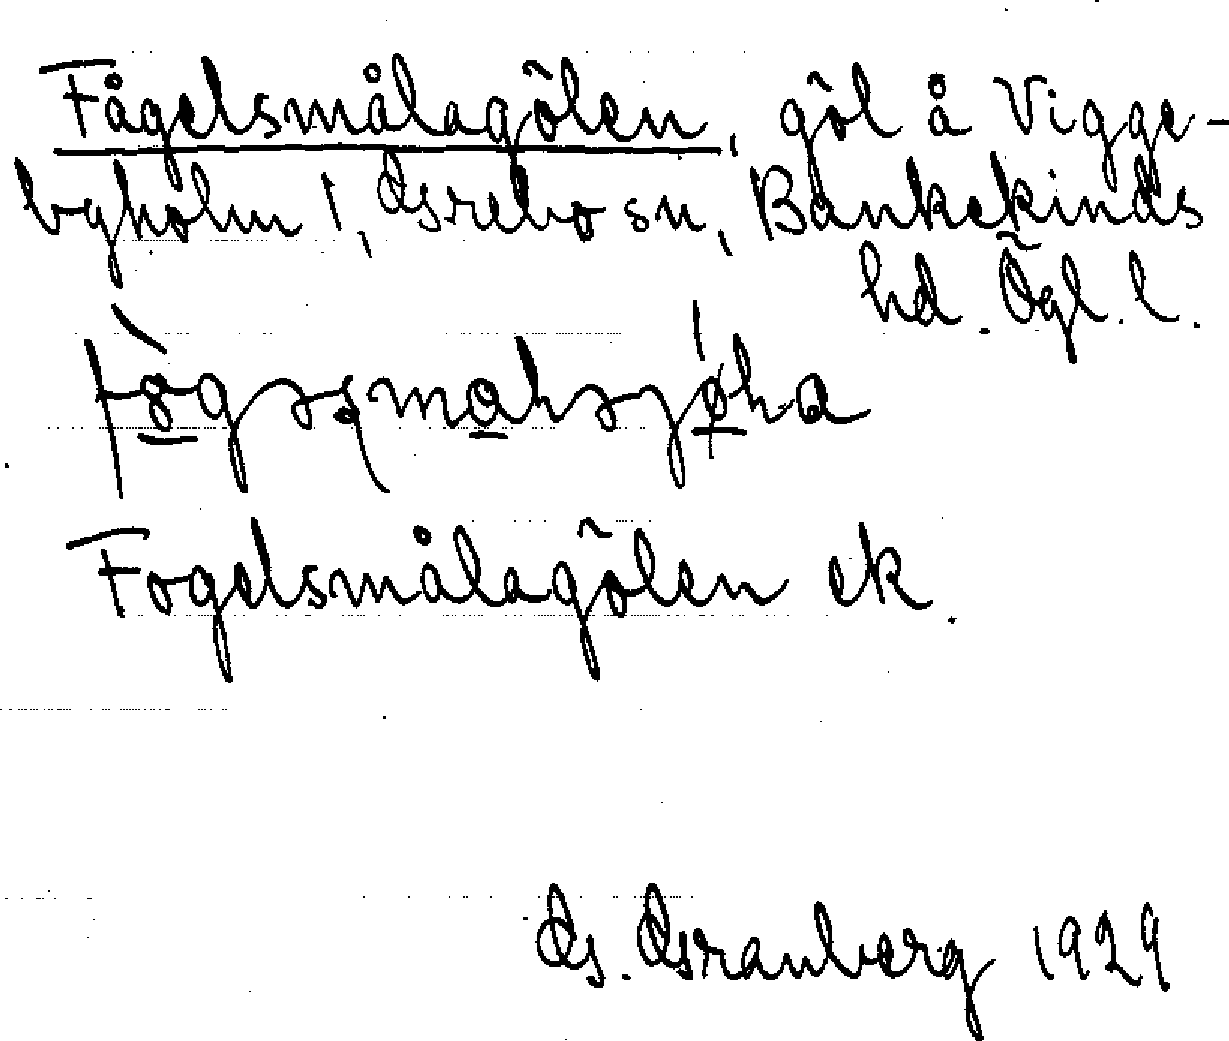 Fågelsmålagölen, göl å Vigge-
byholm 1, Grebo sn, Bankekinds
hd. Ögl. l.
Fogelsmålagölen ek.
G. Granberg 1929